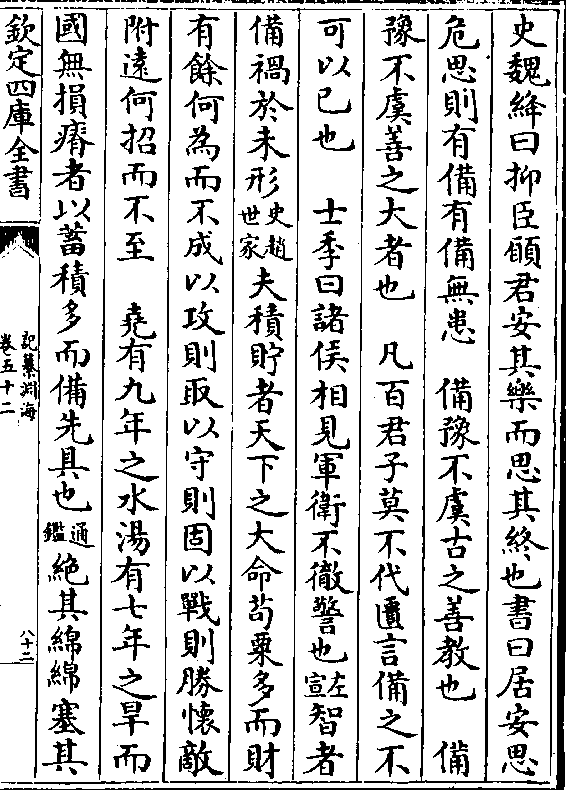 史魏絳曰抑臣願君安其樂而思其終也書曰居安思
危思則有備有備無患　備豫不虞古之善教也　備
豫不虞善之大者也　凡百君子莫不代匱言備之不
可以已也　士季曰諸侯相見軍衛不徹警也左宣智者
備禍於未形史趙世家夫積貯者天下之大命茍粟多而財
有餘何為而不成以攻則取以守則固以戰則勝懷敵
附遠何招而不至　堯有九年之水湯有七年之旱而
國無損瘠者以蓄積多而備先具也通鑑絶其綿綿塞其
欽定四庫全書
記纂淵海
卷五十二
八十二